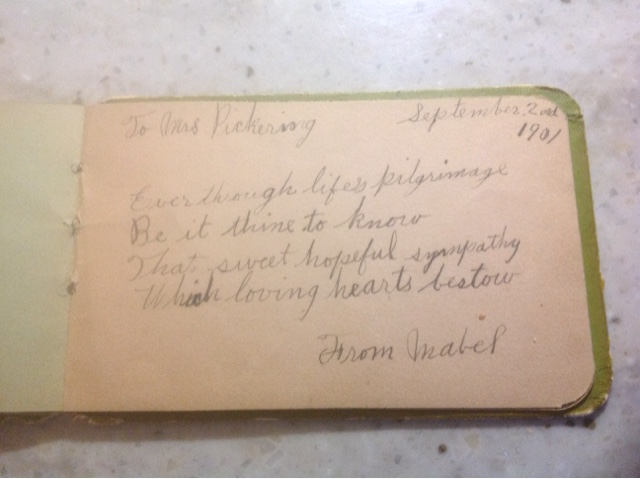 To Mrs Pickering
September 2nd
1901
Ever through life's pilgrimage
Be it thine to know
That sweet hopeful sympathy
Which loving hearts bestow
From Mabel